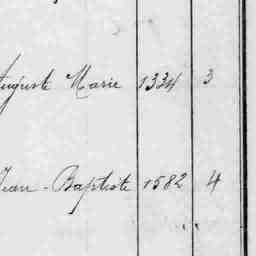 Auguste Marie 1334 3
Jean-Baptiste 1582 4